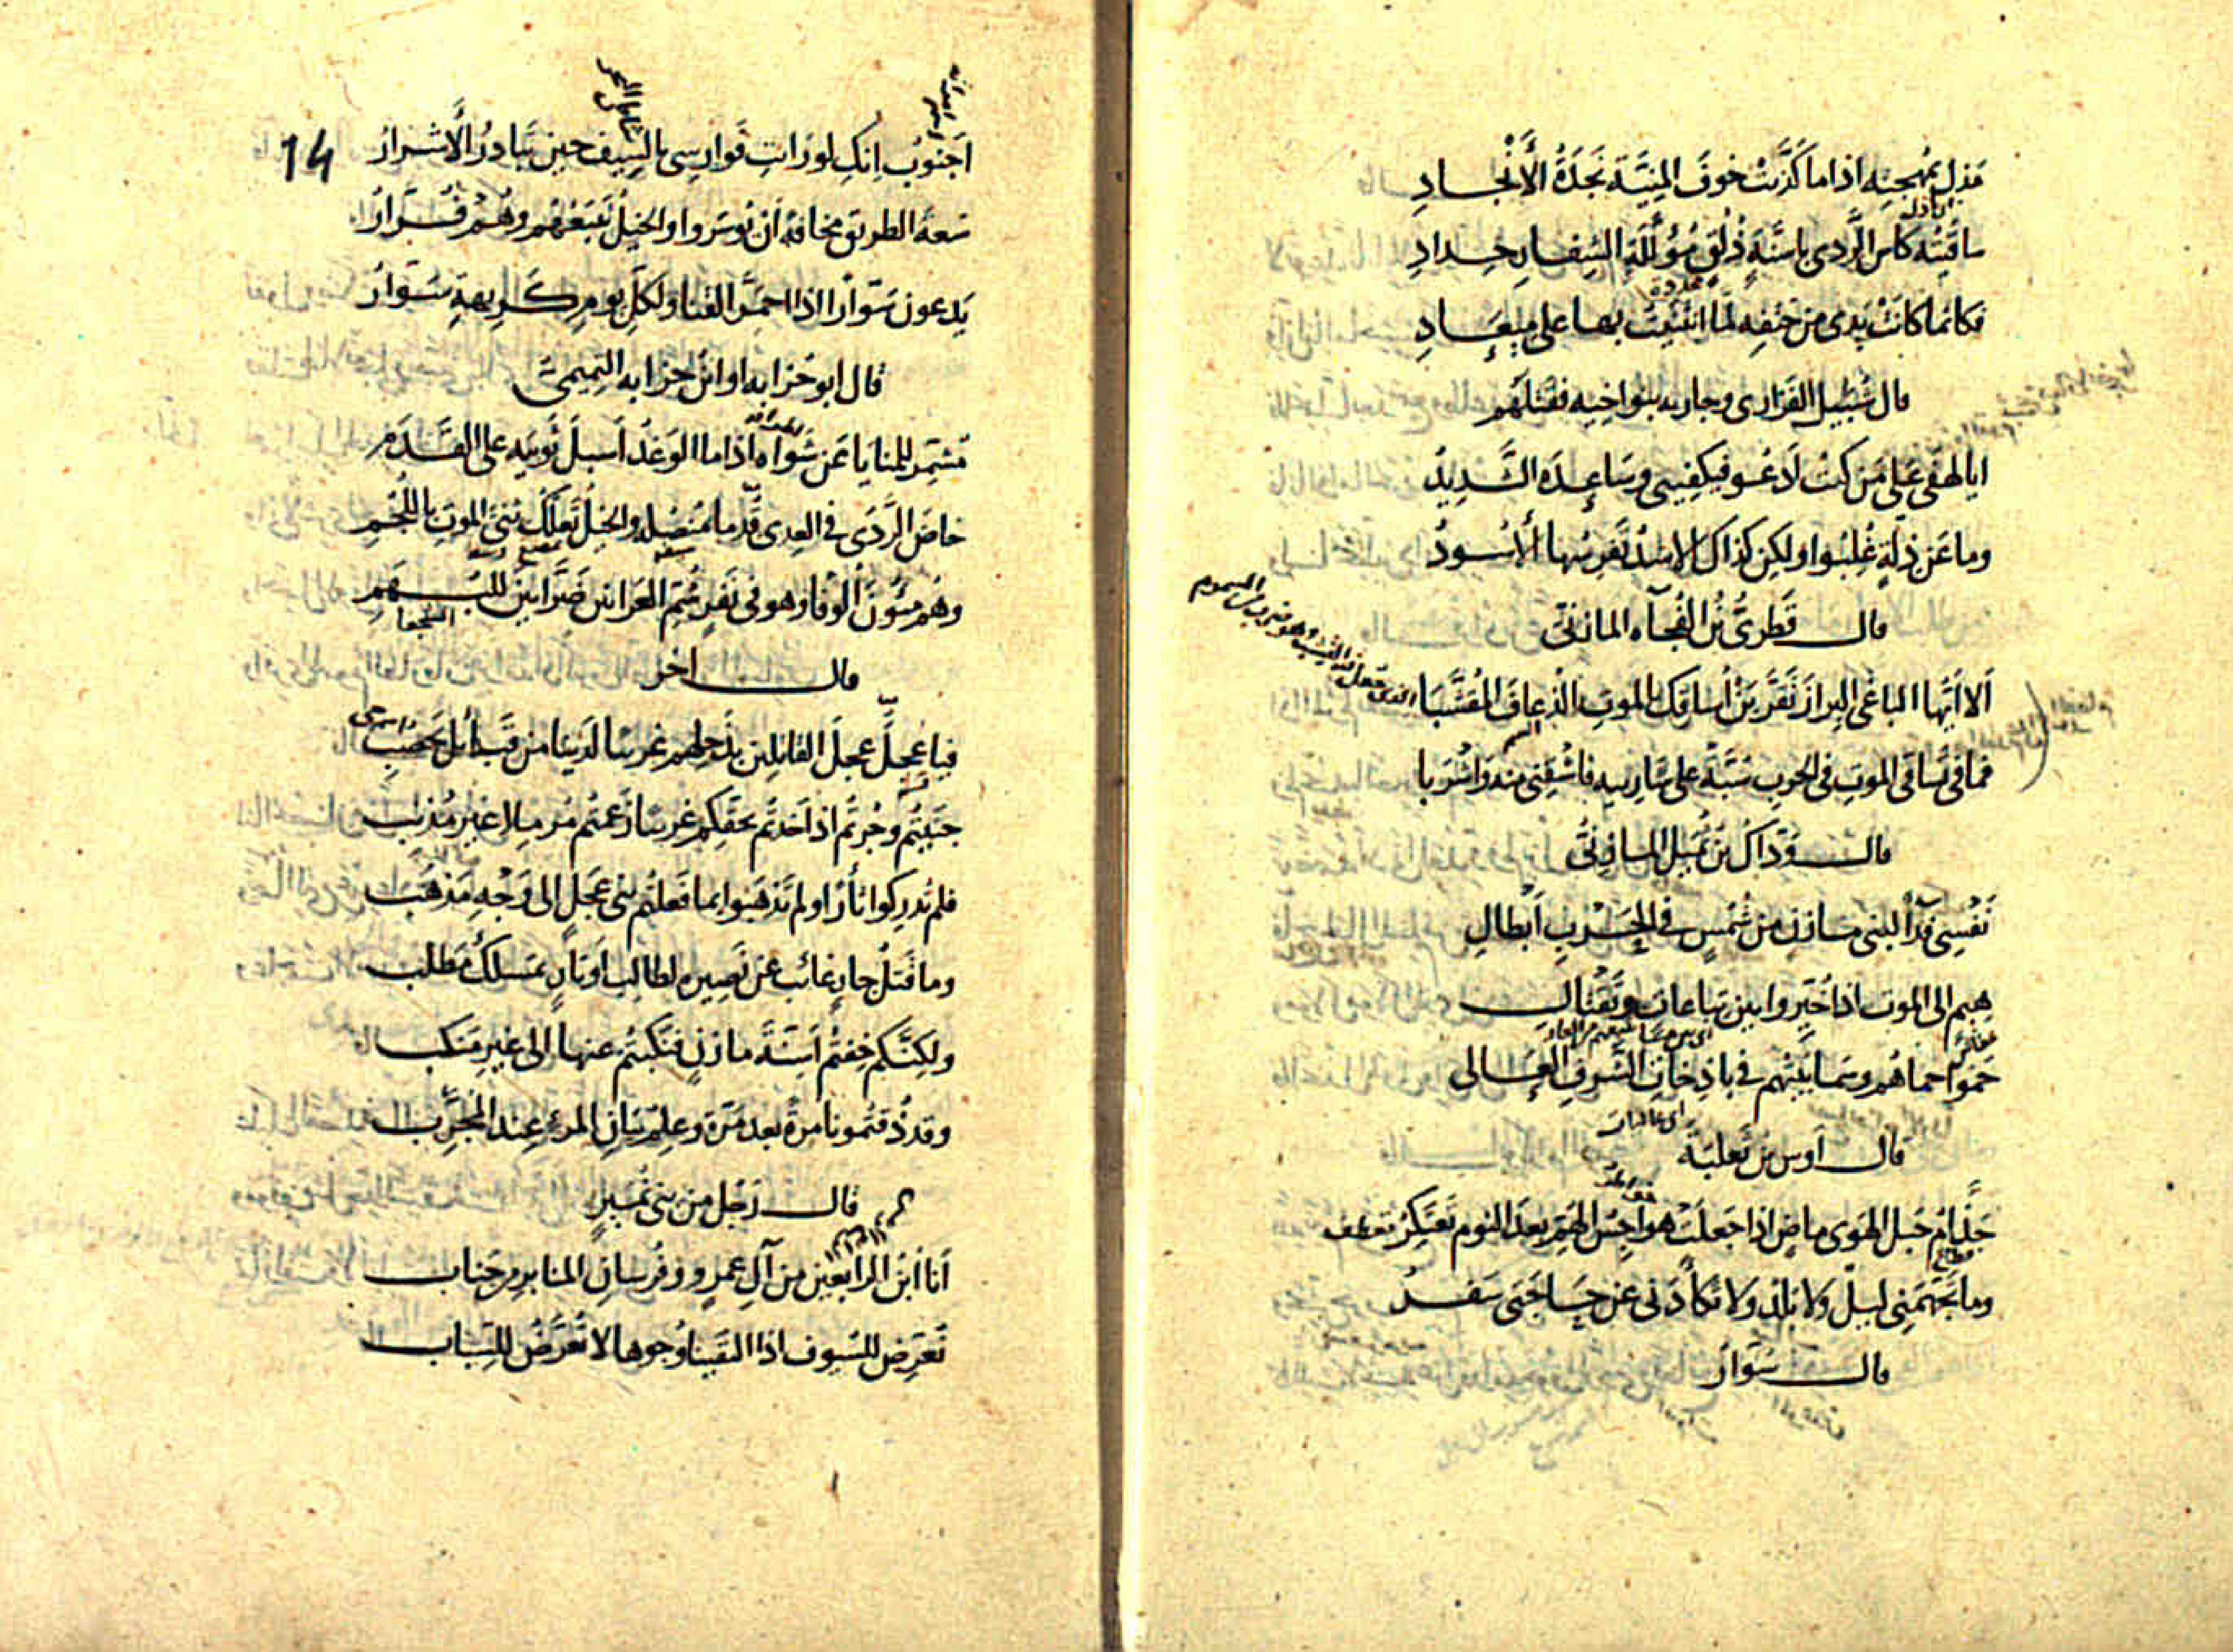 مَذِلٍ بمُهجته اذا ما كذّبت خوف المنيّة نَجدَةُ الأَنْجادِ
باذل
ساقَيْتُه كاس الرَّدى باسنّةٍ ذُلُقٍ مُؤَلَّلَةِ الشِفار حِدادِ
محددة
فكانما كانت يدى من حتفه لمّا انثنيت بها على ميعادِ
قال شُبَيل الفزارى وحاربه بنو اخيه فقتلهم
ايا لهفى على مَن كنت ادعو فيكفينى وساعِدُه الشديدُ
وما عن ذِلّةٍ غُلِبُوا ولكن كذاك الاُسْدُ تَفرِسُها الأُسودُ
قال قَطَرِىُّ بنُ الفُجاه المازنى
ألا أيها الباغى البراز تَقَرَّبَنْ أُساقك بالموت الذعاف المُقَشَّبَا
السم
فما فى تساقى الموت فى الحرب سُبَّةٌ على شاربيه فاسْقِنى منه واشْرَبا
قال وَدّاكُ بن ثُمَيل المازنىُّ
نَفْسِى فِدآ لبنى مازن من شُمُسٍ فى الحَرْبِ أَبْطالِ
هِيمٍ الى الموت اذا خُيِّروا بين تباعاتٍ وتَقْتال
حَمَوْا حماهم وسَما بَيْتُهم فى باذخات الشرف العالى
اى عاليات
قال اوس بن ثعلبة
جَذّامُ حبل الهوى ماضٍ اذا جعلت هواجس الهمّ بعد النوم تَعتَكِرُ تعطف
وما تَجَهَّمَنِى ليلٌ ولا بلدٌ ولا تكأّدنى عن حاجتى سَفَرُ
قال سَوّار
14
أجَنُوبُ انكِ لو رايتِ فوارسى بالسِيف حين تبادرُ الأشرارُ
سَعةَ الطريق مخافةً أن يُؤسَروا والخيلُ تَتبَعُهُم وهُم فُرّارُ
يَدعون سَوّارًا اذا احمرّ القنا ولكلّ يوم كريهةٍ سَوّارُ
قال ابو حُزابه او ابن حزابه التميمىّ
مُشَمِّرٌ للمنايا عن شَواه اذا ما الوَغدُ أسبَلَ ثوبَيه على القَدَمِ
خاضَ الرَّدَى فى العِدى قُدْما بمُنصُله والخيلُ تَعلُكُ ثِنىَ الموت باللُجُمِ
وهُم مِئُونَ أُلوفا وهو فى نَفَرٍ شُمِّ العَرانين ضَرّابين للبُهَمِ
قال اخر
فيا عجلُ عجلَ القاتلين بذَحلِهم غريبا لدينا من قبائل يَحصُبِ
جَنَيتُم وجُرتُم اذ اخذتم بحقكم غريبا زعمتُم مُرمِلا غير مُذنِب
فلم تُدرِكوا ثأرًا ولم تَذهَبوا بما فعلتُم بنى عجلٍ الى وَجْهِ مَذهَب
وما قتلُ جارٍ غائب عن نَصِيره لطالب اوتارٍ بمَسلكِ مَطلب
ولكنّكم خِفتُم أسِنّةَ مازنٍ فنكّبتم عنها الى غير مَنكب
وقد ذُقتُمونا مرةً بعد مَرّةٍ وعِلمُ بيان المرء عِند المُجَرِّب
قال رَجُل من بنى نُمَيرٍ
أنا ابنُ الرابعين من آل عمرو وفُرسانِ المنابر من جَناب
نُعَرِّض للسُيوف اذا التقينا وُجوها لا تُعَرَّضُ للسِباب